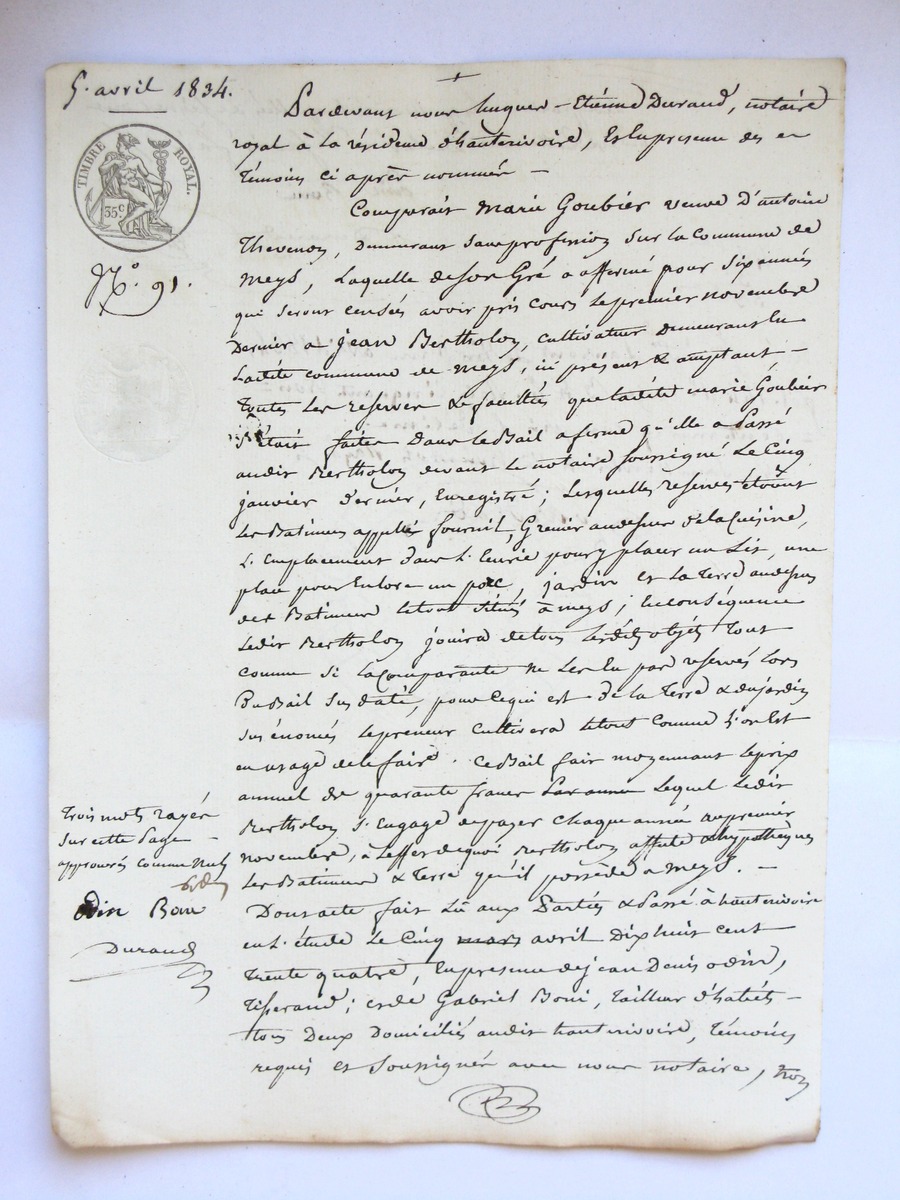 5. avril 1834.
TIMBRE ROYAL.
35 c
N.o 91.
Pardevant nous hugues-Etienne Durand, notaire
royal à la résidence d'hauterivoire, Est en presence des
témoins ci après nommés —
Comparait Marie Goubier veuve d'antoine
Thevenon, demeurant sans profession sur la Commune de
Meys, Laquelle de son Gré a affermé pour six années
qui seront censées avoir pris cours le premier novembre
Dernier a jean Bertholon, cultivateur demeurant en
Ladite commune de meys, ici présent & acceptant —
toutes les reserves & facultés que ladite marie Goubier
s'était faites dans le Bail a ferme qu'elle a Passé
audit Bertholon devant le notaire soussigné Le Cinq
janvier dernier, Enregistré; Lesquelles reserves étoient
Les Batimens appellés fournil, Grenier audessus de la Cuisine,
L'Emplacement dans l'Ecurie pour y placer un Lit, une
place pour Enclore un porc, jardin et la Terre audessus
des Batimens le tout situés à meys; En conséquence
Ledit Bertholon jouira de tous lesdits objets tout
comme si la Comparante ne les eu pas reservés lors
Du Bail sus daté, pour ce qui est de la Terre & du jardin
sus énomés le preneur Cultivera le tout comme l'on Est
en usage de le faire. Ce Bail fait moyennant le prix
annuel de quarante francs Par année Lequel Ledit
Bertholon s'Engage de payer chaque année au premier
novembre, à l'effet de quoi Bertholon affecte & hypotheque
Les Batimens & Terre qu'il possède a meys. —
Dont acte fait Lu aux Parties & Passé à hauterivoire
en L'étude Le Cinq mars avril Dix huit cent
Trente quatre, En presence de jean Denis odin,
Tisserand; et de Gabriel Boni, tailleur d'habits —
tous Deux Domiciliés audit hauterivoire, témoins
requis et soussignés avec nous notaire, non
trois mots rayés
sur cette Page
approuvés comme nuls
odin Boni
Durand